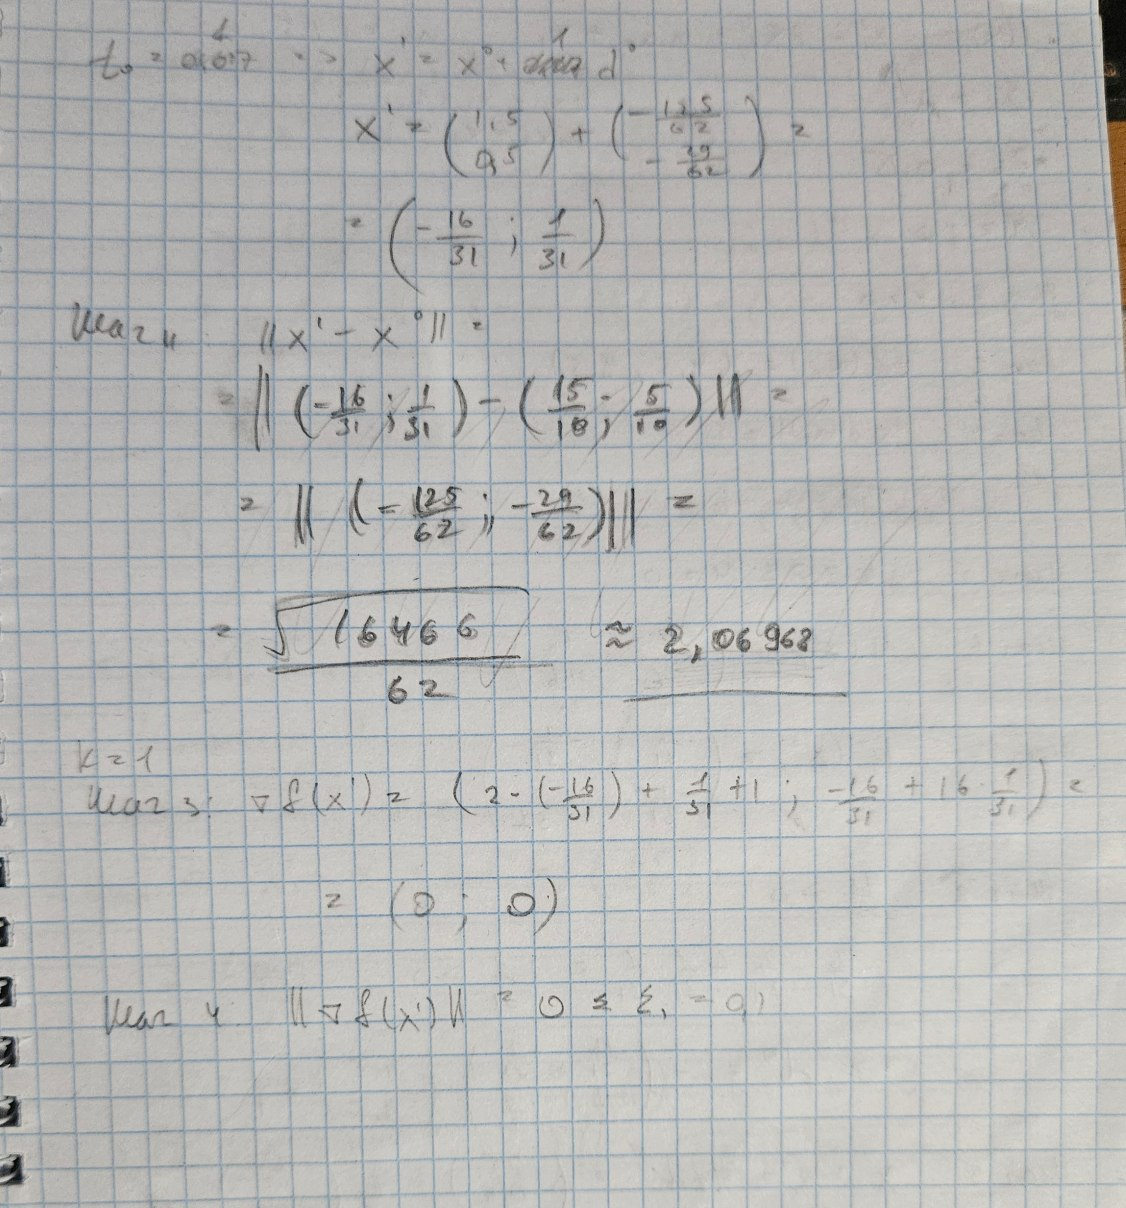 t₀ = 1 => x¹ = x⁰ + 1 d⁰
x¹ = (1,5 0,5) + (-125/62 -29/62) =
= (-16/31 ; 1/31)
Шаг 11 ||x¹ - x⁰|| =
= ||(-16/31 ; 1/31) - (15/10 ; 5/10)|| =
= ||(-125/62 ; -29/62)|| =
= √16466/62 ≈ 2,06968
k = 1
Шаг 3: ∇f(x¹) = (2·(-16/31) + 1/31 + 1 ; -16/31 + 16·1/31) =
= (0 ; 0)
Шаг 4: ||∇f(x¹)|| = 0 ≤ ε₁ = 0,1